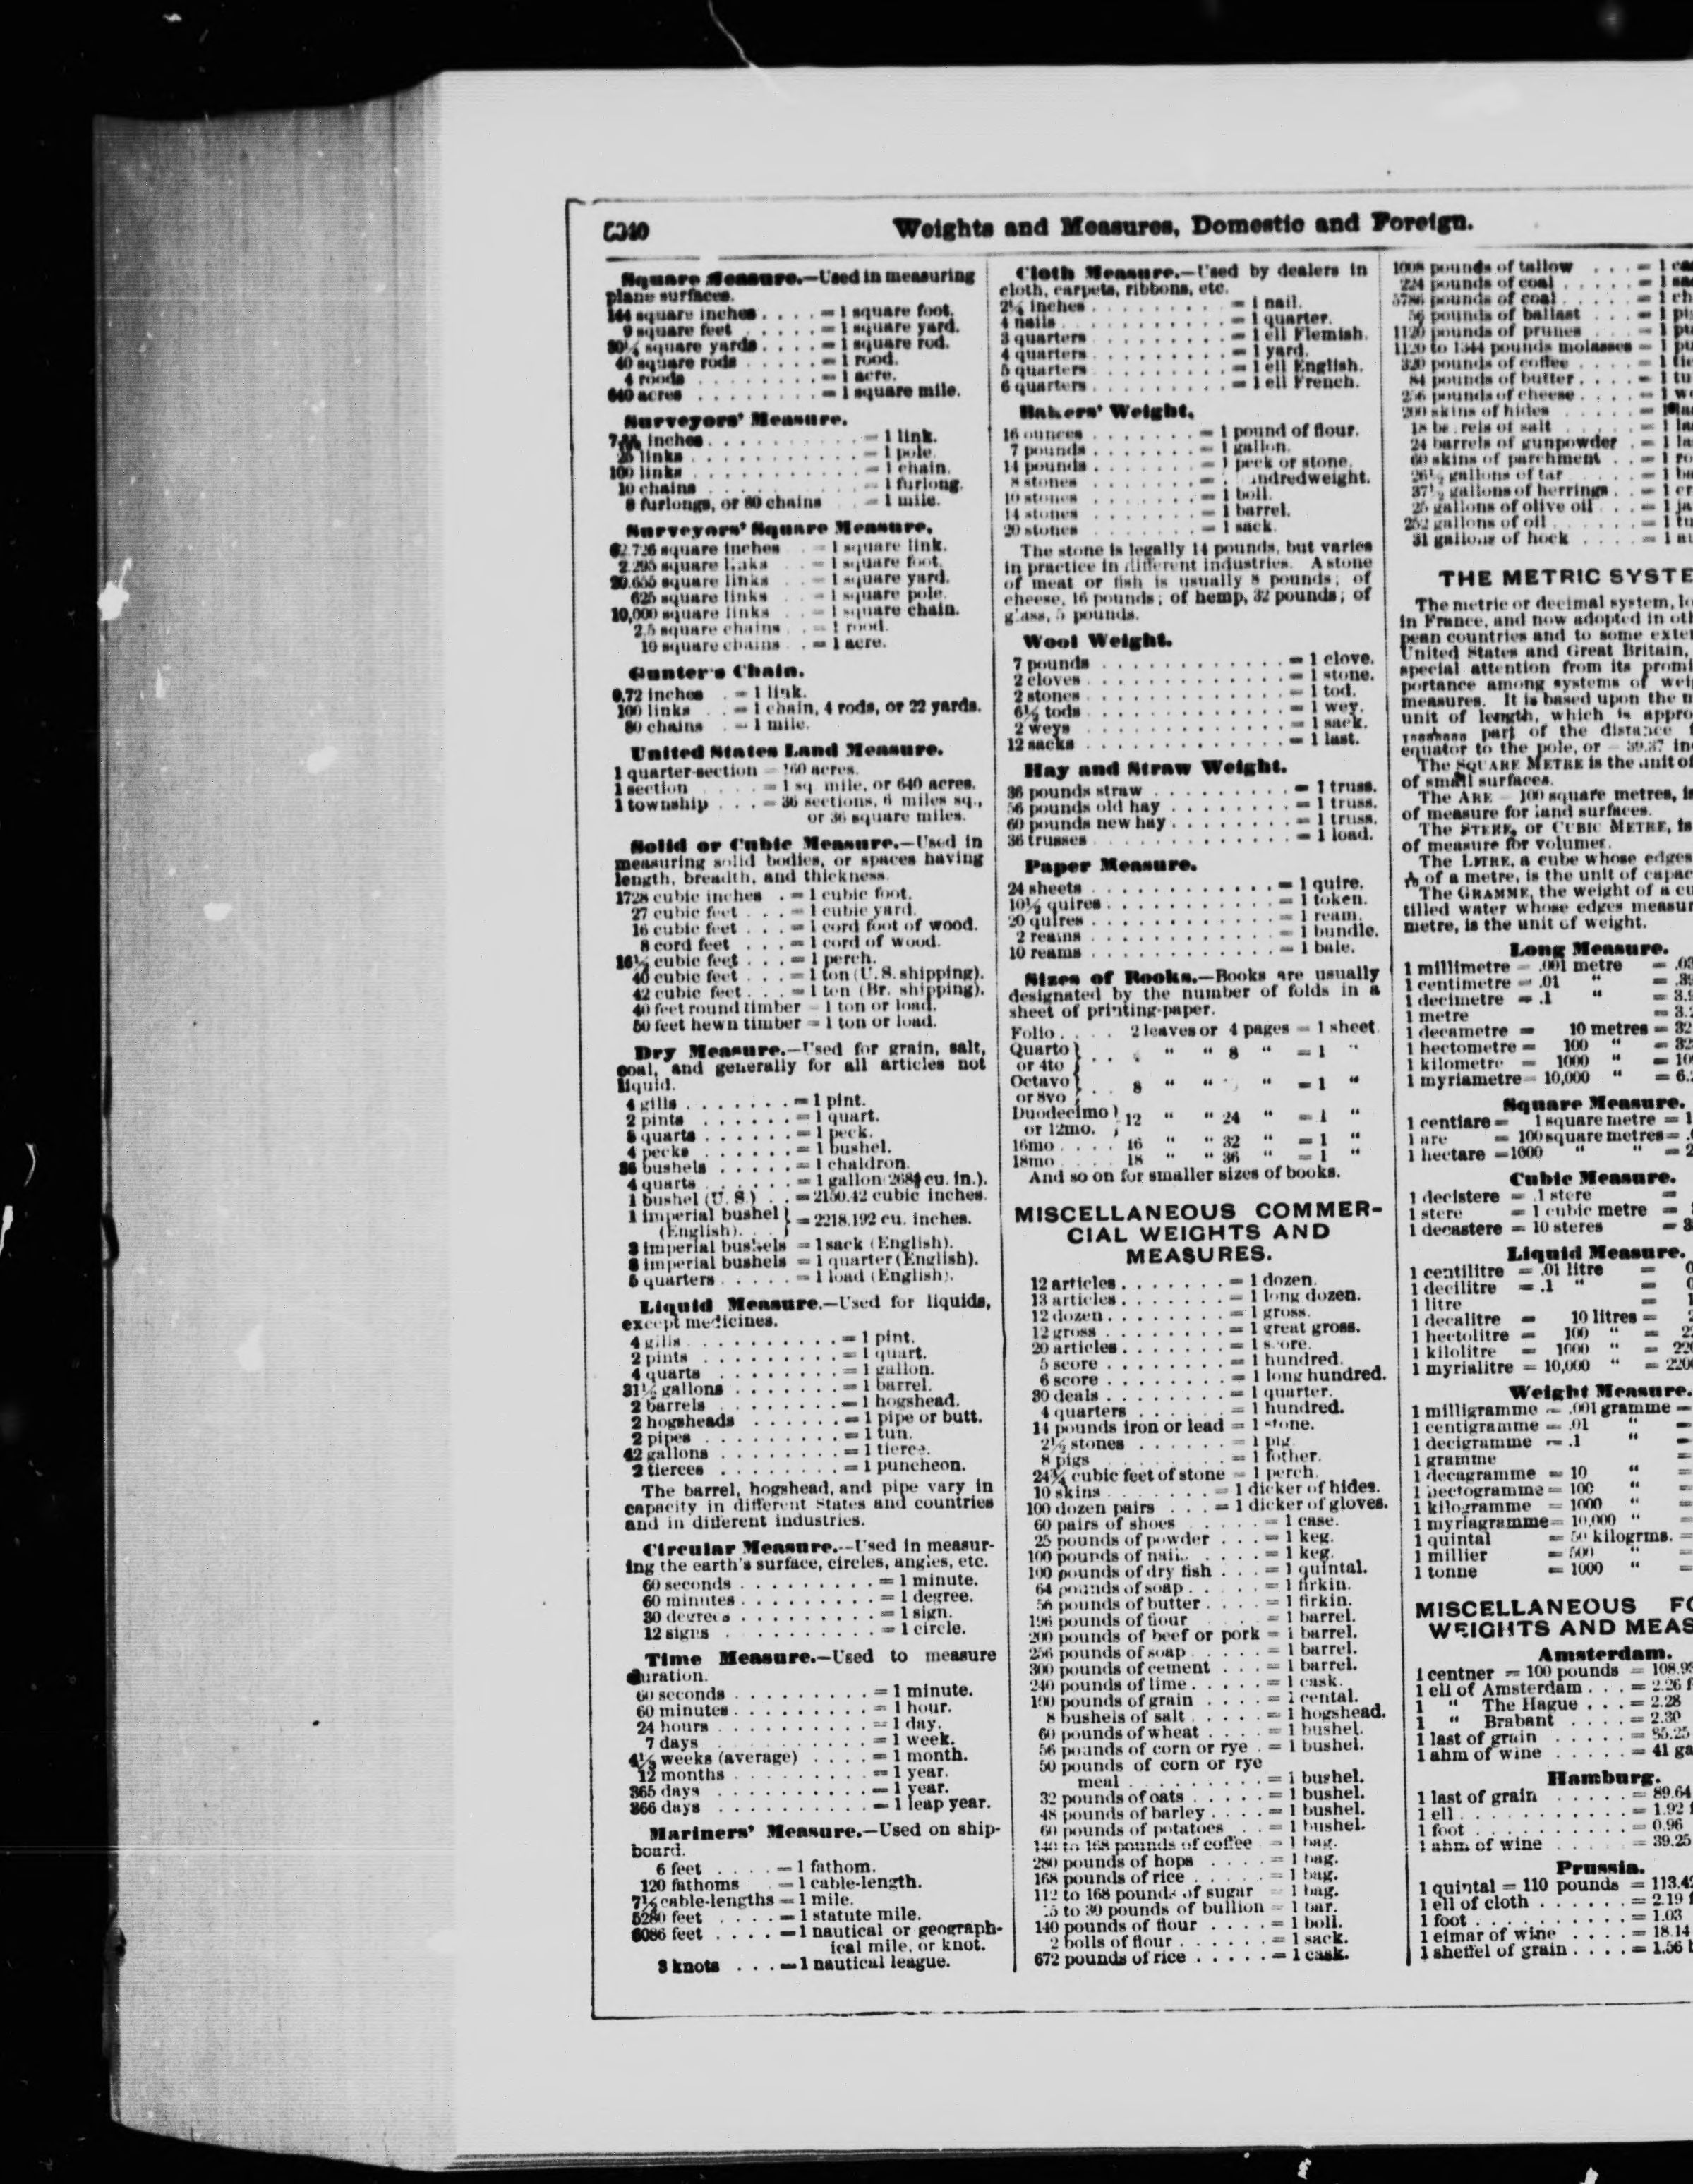 Weights and Measures, Domestic and Foreign.
Square Measure.—Used in measuring
plane surfaces.
144 square inches . . . . = 1 square foot.
9 square feet . . . . . = 1 square yard.
30¼ square yards . . . . = 1 square rod.
40 square rods . . . . . = 1 rood.
4 roods . . . . . . . . = 1 acre.
640 acres . . . . . . . . = 1 square mile.
Surveyors' Measure.
inches . . . . . . . . . . = 1 link.
links . . . . . . . . . . . = 1 pole.
100 links . . . . . . . . . . = 1 chain.
10 chains . . . . . . . . . = 1 furlong.
8 furlongs, or 80 chains . . = 1 mile.
Surveyors' Square Measure.
62.726 square inches . . = 1 square link.
2.295 square links . . = 1 square foot.
20.655 square links . . = 1 square yard.
625 square links . . = 1 square pole.
10,000 square links . . = 1 square chain.
2.5 square chains . . = 1 rood.
10 square chains . . = 1 acre.
Gunter's Chain.
inches . = 1 link.
100 links . . = 1 chain, 4 rods, or 22 yards.
80 chains . = 1 mile.
United States Land Measure.
1 quarter-section = 160 acres.
1 section . . . . = 1 sq. mile, or 640 acres.
1 township . . . = 36 sections, 6 miles sq.,
or 36 square miles.
Solid or Cubic Measure.—Used in
measuring solid bodies, or spaces having
length, breadth, and thickness.
1728 cubic inches . = 1 cubic foot.
27 cubic feet . . . = 1 cubic yard.
16 cubic feet . . . = 1 cord foot of wood.
8 cord feet . . . = 1 cord of wood.
16½ cubic feet . . . = 1 perch.
40 cubic feet . . . = 1 ton (U. S. shipping).
42 cubic feet . . . = 1 ton (Br. shipping).
40 feet round timber = 1 ton or load.
50 feet hewn timber = 1 ton or load.
Dry Measure.—Used for grain, salt,
coal, and generally for all articles not
liquid.
4 gills . . . . . . . = 1 pint.
2 pints . . . . . . = 1 quart.
8 quarts . . . . . . = 1 peck.
4 pecks . . . . . . = 1 bushel.
36 bushels . . . . . = 1 chaldron.
4 quarts . . . . . . = 1 gallon cu. in.).
1 bushel (U. S.) . . = 2150.42 cubic inches.
1 imperial bushel } = 2218.192 cu. inches.
(English). . . }
3 imperial bushels = 1 sack (English).
8 imperial bushels = 1 quarter (English).
5 quarters . . . . . = 1 load (English).
Liquid Measure.—Used for liquids,
except medicines.
4 gills . . . . . . . . . . = 1 pint.
2 pints . . . . . . . . . = 1 quart.
4 quarts . . . . . . . . = 1 gallon.
31½ gallons . . . . . . . = 1 barrel.
2 barrels . . . . . . . . = 1 hogshead.
2 hogsheads . . . . . . = 1 pipe or butt.
2 pipes . . . . . . . . . = 1 tun.
42 gallons . . . . . . . . = 1 tierce.
2 tierces . . . . . . . . = 1 puncheon.
The barrel, hogshead, and pipe vary in
capacity in different States and countries
and in different industries.
Circular Measure.—Used in measur-
ing the earth's surface, circles, angles, etc.
60 seconds . . . . . . . . . = 1 minute.
60 minutes . . . . . . . . . = 1 degree.
30 degrees . . . . . . . . . = 1 sign.
12 signs . . . . . . . . . . = 1 circle.
Time Measure.—Used to measure
duration.
60 seconds . . . . . . . . . = 1 minute.
60 minutes . . . . . . . . . = 1 hour.
24 hours . . . . . . . . . . = 1 day.
7 days . . . . . . . . . . = 1 week.
weeks (average) . . . . = 1 month.
12 months . . . . . . . . . = 1 year.
365 days . . . . . . . . . . = 1 year.
366 days . . . . . . . . . . = 1 leap year.
Mariners' Measure.—Used on ship-
board.
6 feet . . . . = 1 fathom.
120 fathoms . = 1 cable-length.
7½ cable-lengths = 1 mile.
5280 feet . . . . = 1 statute mile.
6086 feet . . . . = 1 nautical or geograph-
ical mile, or knot.
3 knots . . . = 1 nautical league.
Cloth Measure.—Used by dealers in
cloth, carpets, ribbons, etc.
2¼ inches . . . . . . . . . = 1 nail.
4 nails . . . . . . . . . . . = 1 quarter.
3 quarters . . . . . . . . . = 1 ell Flemish.
4 quarters . . . . . . . . . = 1 yard.
5 quarters . . . . . . . . . = 1 ell English.
6 quarters . . . . . . . . . = 1 ell French.
Bakers' Weight.
16 ounces . . . . . . . = 1 pound of flour.
7 pounds . . . . . . . = 1 gallon.
14 pounds . . . . . . . = 1 peck or stone.
8 stones . . . . . . . =
10 stones . . . . . . . = 1 boll.
14 stones . . . . . . . = 1 barrel.
20 stones . . . . . . . = 1 sack.
The stone is legally 14 pounds, but varies
in practice in different industries. A stone
of meat or fish is usually 8 pounds; of
cheese, 16 pounds; of hemp, 32 pounds; of
glass, 5 pounds.
Wool Weight.
7 pounds . . . . . . . . . . . . = 1 clove.
2 cloves . . . . . . . . . . . . . = 1 stone.
2 stones . . . . . . . . . . . . . = 1 tod.
6½ tods . . . . . . . . . . . . . = 1 wey.
2 weys . . . . . . . . . . . . . = 1 sack.
12 sacks . . . . . . . . . . . . . = 1 last.
Hay and Straw Weight.
36 pounds straw . . . . . . . . . = 1 truss.
56 pounds old hay . . . . . . . . = 1 truss.
60 pounds new hay . . . . . . . . = 1 truss.
36 trusses . . . . . . . . . . . . . = 1 load.
Paper Measure.
24 sheets . . . . . . . . . . . . = 1 quire.
10½ quires . . . . . . . . . . . = 1 token.
20 quires . . . . . . . . . . . . = 1 ream.
2 reams . . . . . . . . . . . . = 1 bundle.
10 reams . . . . . . . . . . . . = 1 bale.
Sizes of Books.—Books are usually
designated by the number of folds in a
sheet of printing-paper.
Folio . . . . 2 leaves or 4 pages = 1 sheet
Quarto } . . " " 8 " = 1 "
or 4to }
Octavo } . . 8 " " " = 1 "
or 8vo }
Duodecimo } 12 " " 24 " = 1 "
or 12mo. }
16mo . . . . 16 " " 32 " = 1 "
18mo . . . . 18 " " 36 " = 1 "
And so on for smaller sizes of books.
MISCELLANEOUS COMMER-
CIAL WEIGHTS AND
MEASURES.
12 articles . . . . . . . = 1 dozen.
13 articles . . . . . . . = 1 long dozen.
12 dozen . . . . . . . . = 1 gross.
12 gross . . . . . . . . = 1 great gross.
20 articles . . . . . . . = 1 score.
5 score . . . . . . . . = 1 hundred.
6 score . . . . . . . . = 1 long hundred.
30 deals . . . . . . . . = 1 quarter.
4 quarters . . . . . . = 1 hundred.
14 pounds iron or lead = 1 stone.
21½ stones . . . . . . = 1 pig.
8 pigs . . . . . . . . = 1 fother.
24¾ cubic feet of stone = 1 perch.
10 skins . . . . . . . = 1 dicker of hides.
100 dozen pairs . . . = 1 dicker of gloves.
60 pairs of shoes . . . . . = 1 case.
25 pounds of powder . . . = 1 keg.
100 pounds of nails . . . . = 1 keg.
100 pounds of dry fish . . . = 1 quintal.
64 pounds of soap . . . . . = 1 firkin.
56 pounds of butter . . . . = 1 firkin.
196 pounds of flour . . . = 1 barrel.
200 pounds of beef or pork = 1 barrel.
256 pounds of soap . . . . . = 1 barrel.
300 pounds of cement . . . = 1 barrel.
240 pounds of lime . . . . . = 1 cask.
100 pounds of grain . . . . = 1 cental.
8 bushels of salt . . . . . = 1 hogshead.
60 pounds of wheat . . . . = 1 bushel.
56 pounds of corn or rye . = 1 bushel.
50 pounds of corn or rye
meal . . . . . . . . . = 1 bushel.
32 pounds of oats . . . . . = 1 bushel.
48 pounds of barley . . . . = 1 bushel.
60 pounds of potatoes . . = 1 bushel.
140 to 168 pounds of coffee = 1 bag.
280 pounds of hops . . . . = 1 bag.
168 pounds of rice . . . . . = 1 bag.
112 to 168 pounds of sugar = 1 bag.
to 30 pounds of bullion = 1 bar.
140 pounds of flour . . . . = 1 boll.
2 bolls of flour . . . . . . = 1 sack.
672 pounds of rice . . . . . = 1 cask.
1008 pounds of tallow . . . = 1
224 pounds of coal . . . . . = 1
pounds of coal . . . . . = 1
56 pounds of ballast . . . = 1
1120 pounds of prunes . . . = 1
1120 to 1344 pounds molasses = 1
320 pounds of coffee . . . . = 1
84 pounds of butter . . . . = 1
256 pounds of cheese . . . . = 1
200 skins of hides . . . . . =
18 barrels of salt . . . . . = 1
24 barrels of gunpowder . = 1
60 skins of parchment . . = 1
26½ gallons of tar . . . . = 1
37½ gallons of herrings . . = 1
25 gallons of olive oil . . . = 1
252 gallons of oil . . . . . = 1
31 gallons of hock . . . . = 1
THE METRIC SYSTE
The metric or decimal system,
in France, and now adopted in
pean countries and to some
United States and Great Britain,
special attention from its
portance among systems of
measures. It is based upon the
unit of length, which is
part of the distance
equator to the pole, or = 39.37
The SQUARE METRE is the unit of
of small surfaces.
The ARE = 100 square metres,
of measure for land surfaces.
The STERE, or CUBIC METRE, is
of measure for volumes.
The LITRE, a cube whose edges
of a metre, is the unit of
The GRAMME, the weight of a
tilled water whose edges
metre, is the unit of weight.
Long Measure.
1 millimetre = .001 metre = .03
1 centimetre = .01 " = .39
1 decimetre = .1 " = 3.9
1 metre = 3.2
1 decametre = 10 metres = 32
1 hectometre = 100 " = 32
1 kilometre = 1000 " = 10
1 myriametre = 10,000 " = 6.
Square Measure.
1 centiare = 1 square metre = 1
1 are = 100 square metres =
1 hectare = 1000 " " = 2
Cubic Measure.
1 decistere = .1 stere =
1 stere = 1 cubic metre =
1 decastere = 10 steres =
Liquid Measure.
1 centilitre = .01 litre = 0
1 decilitre = .1 " = 0
1 litre = 1
1 decalitre = 10 litres = 2
1 hectolitre = 100 " = 22
1 kilolitre = 1000 " = 220
1 myrialitre = 10,000 " = 2200
Weight Measure.
1 milligramme = .001 gramme =
1 centigramme = .01 " =
1 decigramme = .1 " =
1 gramme =
1 decagramme = 10 " =
1 hectogramme = 100 " =
1 kilogramme = 1000 " =
1 myriagramme = 10,000 " =
1 quintal = 50 kilogrms. =
1 millier = 500 " =
1 tonne = 1000 " =
MISCELLANEOUS FO
WEIGHTS AND MEAS
Amsterdam.
1 centner = 100 pounds = 108.9
1 ell of Amsterdam . . . = 2.26 f
1 " The Hague . . . = 2.28
1 " Brabant . . . . = 2.30
1 last of grain . . . . . = 85.25
1 ahm of wine . . . . . = 41 ga
Hamburg.
1 last of grain . . . . . = 89.64
1 ell . . . . . . . . . . . = 1.92 f
1 foot . . . . . . . . . . = 0.96
1 ahm of wine . . . . = 39.25
Prussia.
1 quintal = 110 pounds = 113.42
1 ell of cloth . . . . . . = 2.19 f
1 foot . . . . . . . . . . = 1.03
1 eimar of wine . . . . = 18.14
1 sheffel of grain . . . . = 1.56 b